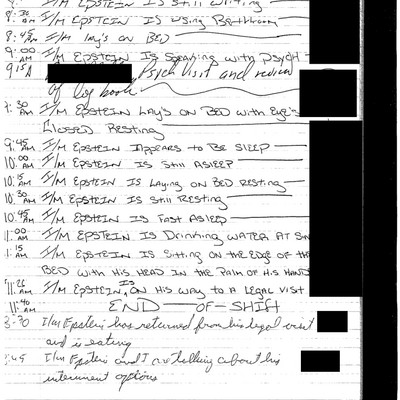 I/M EPSTEIN IS Still writing
8:30 AM I/M EPSTEIN IS using Bathroom
8:45 AM I/M lay's on BED
9:00 AM I/M EPSTEIN Is Speaking with PSYCH
9:15A Psych Visit and review
of log book
9:30 AM I/M EPSTEIN Lay's on BED with Eye's
Closed Resting
9:45 AM I/M EPSTEIN Appears to BE SLEEP
10:00 AM I/M EPSTEIN IS Still ASLEEP
10:15 AM I/M EPSTEIN IS Laying on BED Resting
10:30 AM I/M EPSTEIN IS Still RESTING
10:45 AM I/M EPSTEIN IS FAST ASLEEP
11:00 AM I/M EPSTEIN IS Drinking WATER AT SIN
11:15 AM I/M EPSTEIN IS Sitting on the Edge of the
BED with His HEAD IN the Palm of His HANDS
11:26 AM I/M EPSTEIN, IS ON His way to A legal visit
11:40 AM END OF SHIFT
3:30 I/m Epstein has returned from his legal visit
and is eating
:45 I/m Epstein and I are talking about his
internment options